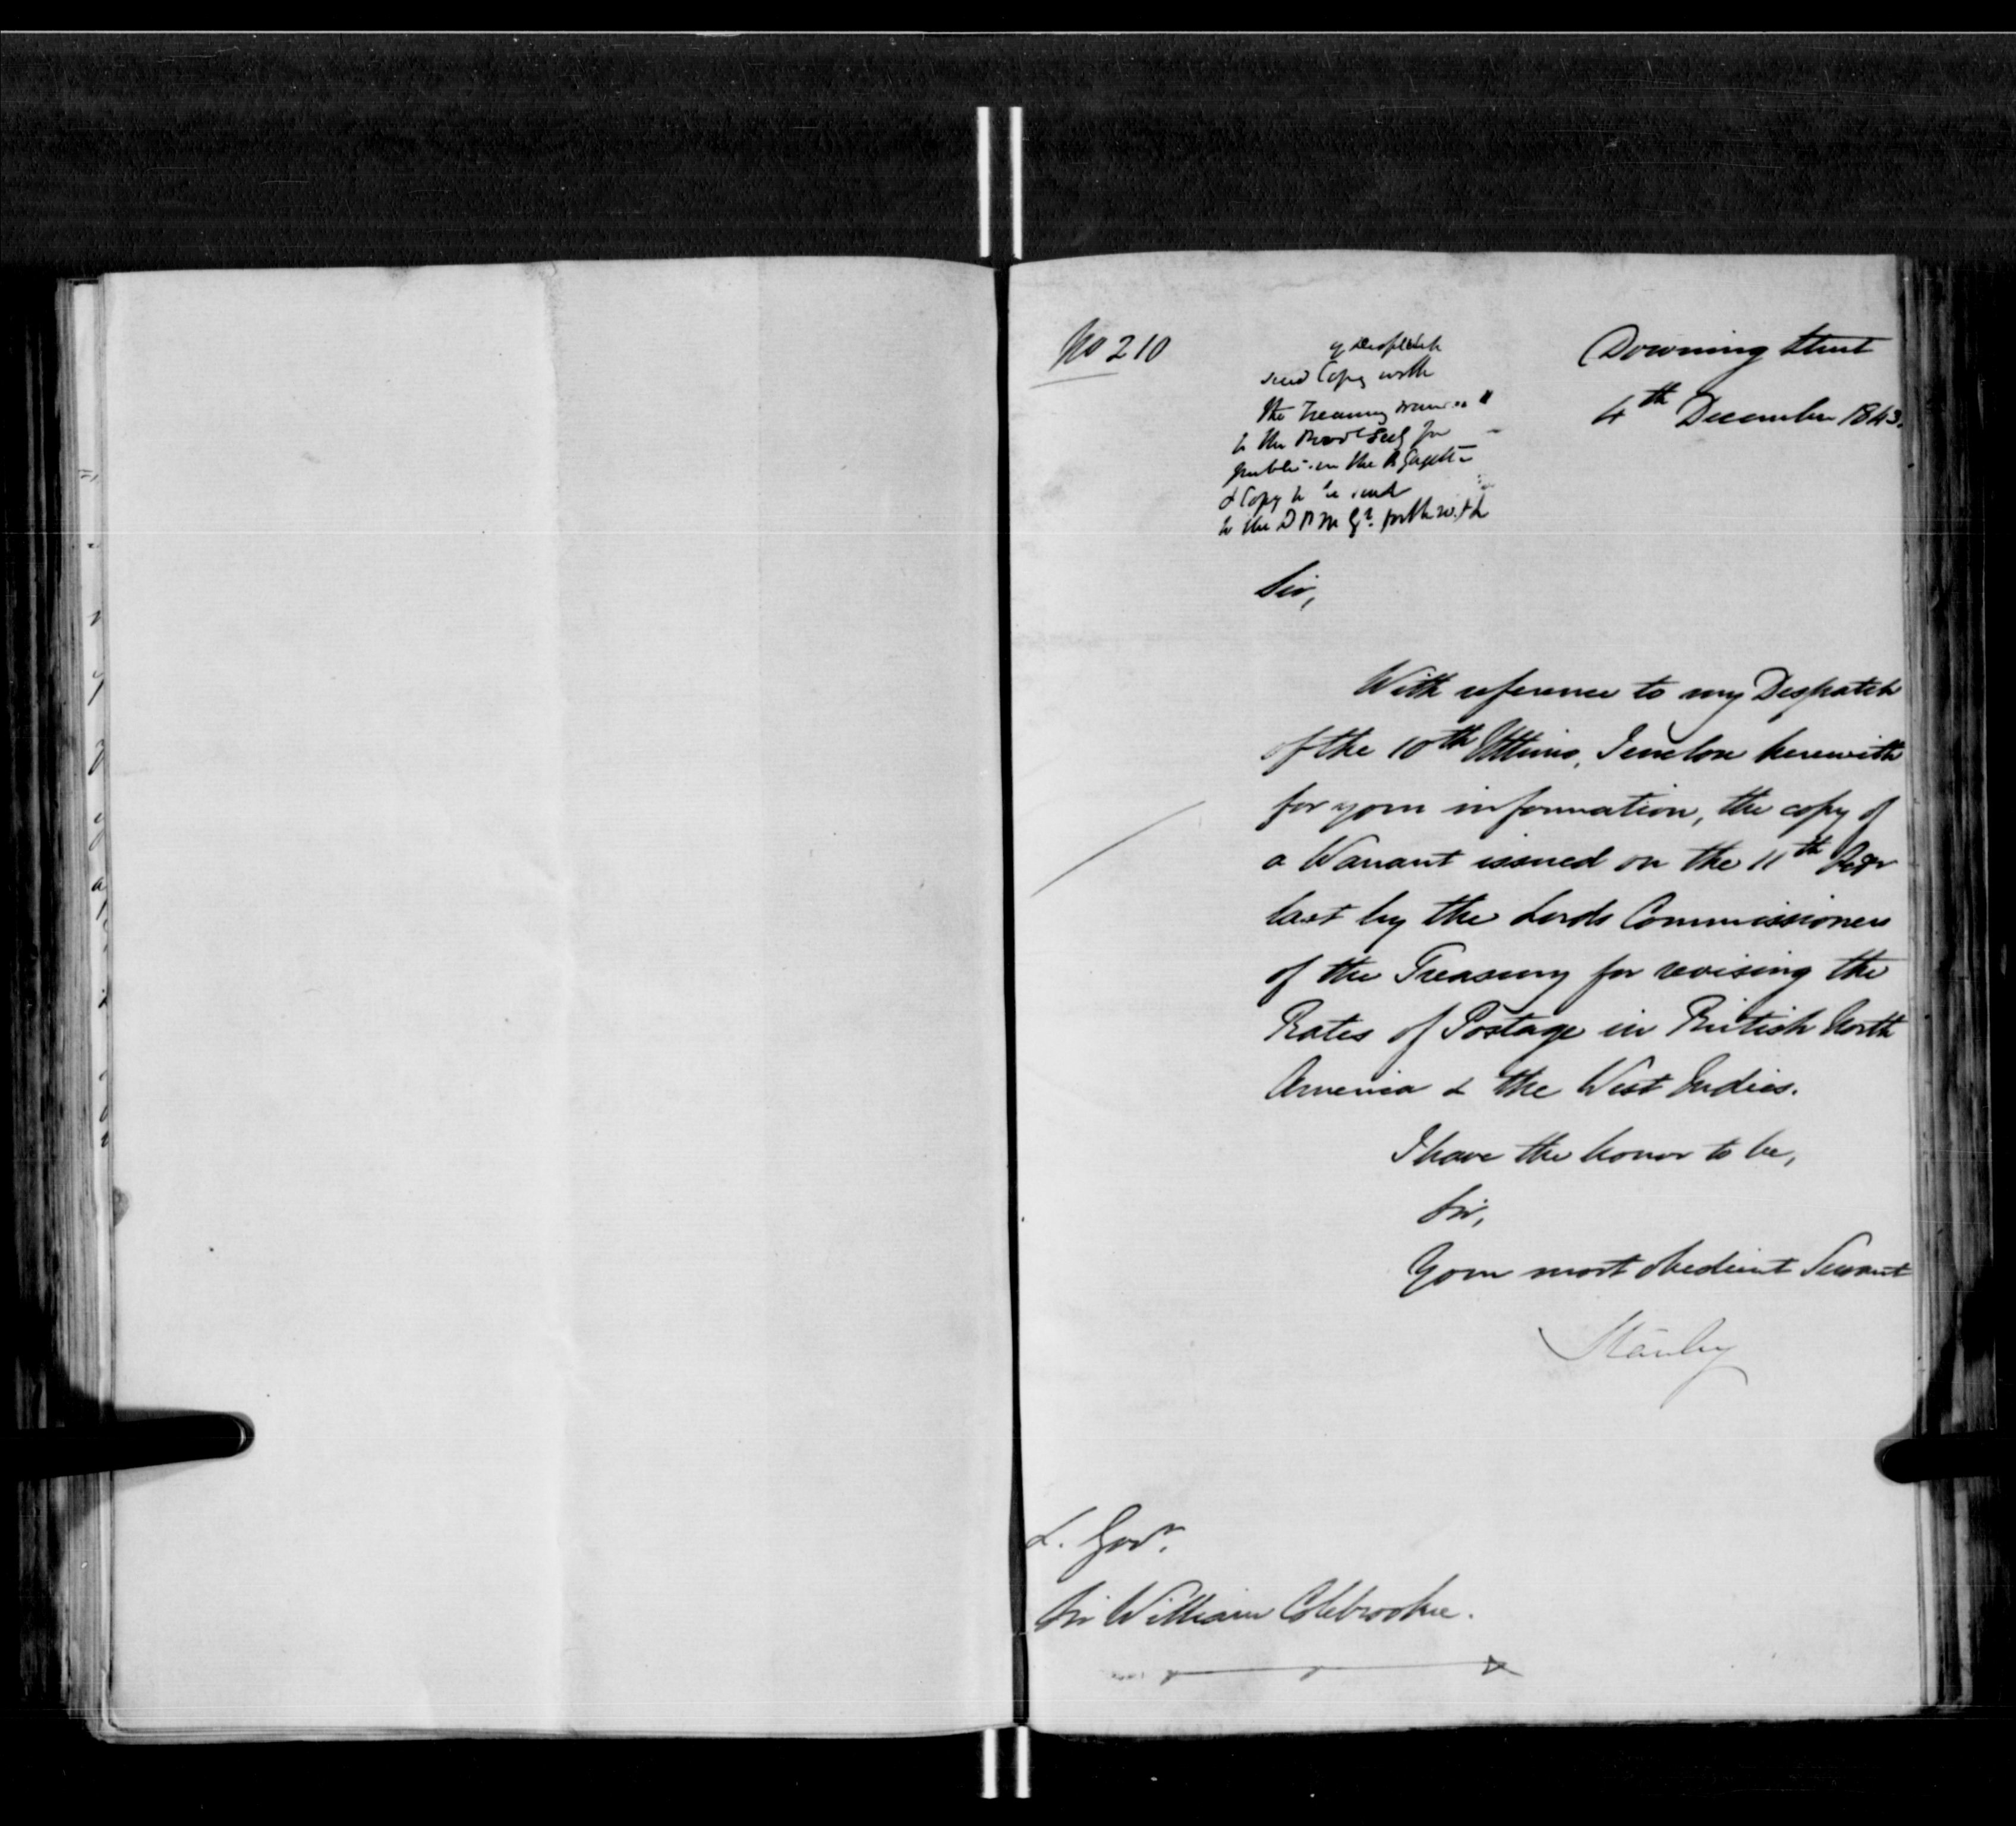 No 210
Downing Street
4th December 1843.
of Despatch
send Copy with
the Treasury
to the Prov'l Secy for
public'n in the R Gazette
& Copy to be sent
to the D P M Gl. forthwith
Sir,
With reference to my Despatch
of the 10th Ultimo, I enclose herewith
for your information, the copy of
a Warrant issued on the 11th
last by the Lords Commissioners
of the Treasury for revising the
Rates of Postage in British North
America & the West Indies.
I have the honor to be,
Sir,
Your most obedient Servant
Stanley
L. Govr.
Sir William Colebrooke.